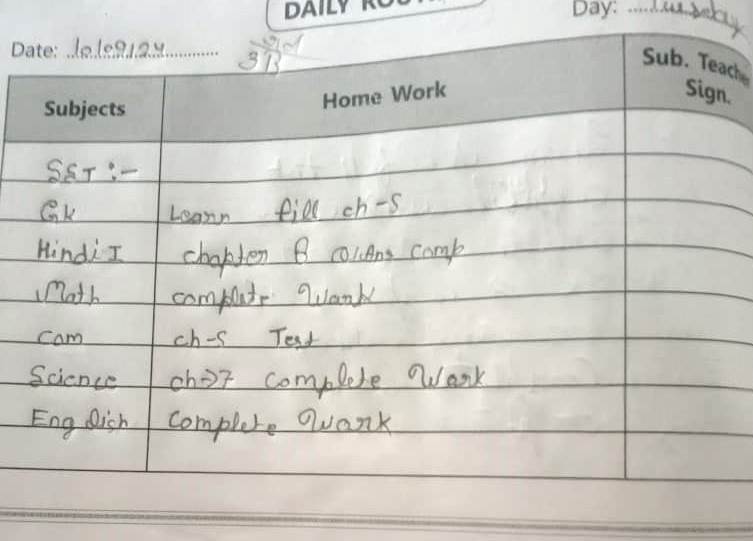 DAILY
Day: Tuesday
Date: 10/09/24
Subjects Home Work Sub. Teache Sign.
SST :-
Gk Learn fill ch-5
Hindi I chapter 8 Q/Ans comp
Math complete Wank
Com ch-5 Test
Science ch→7 complete Work
English complete Wank